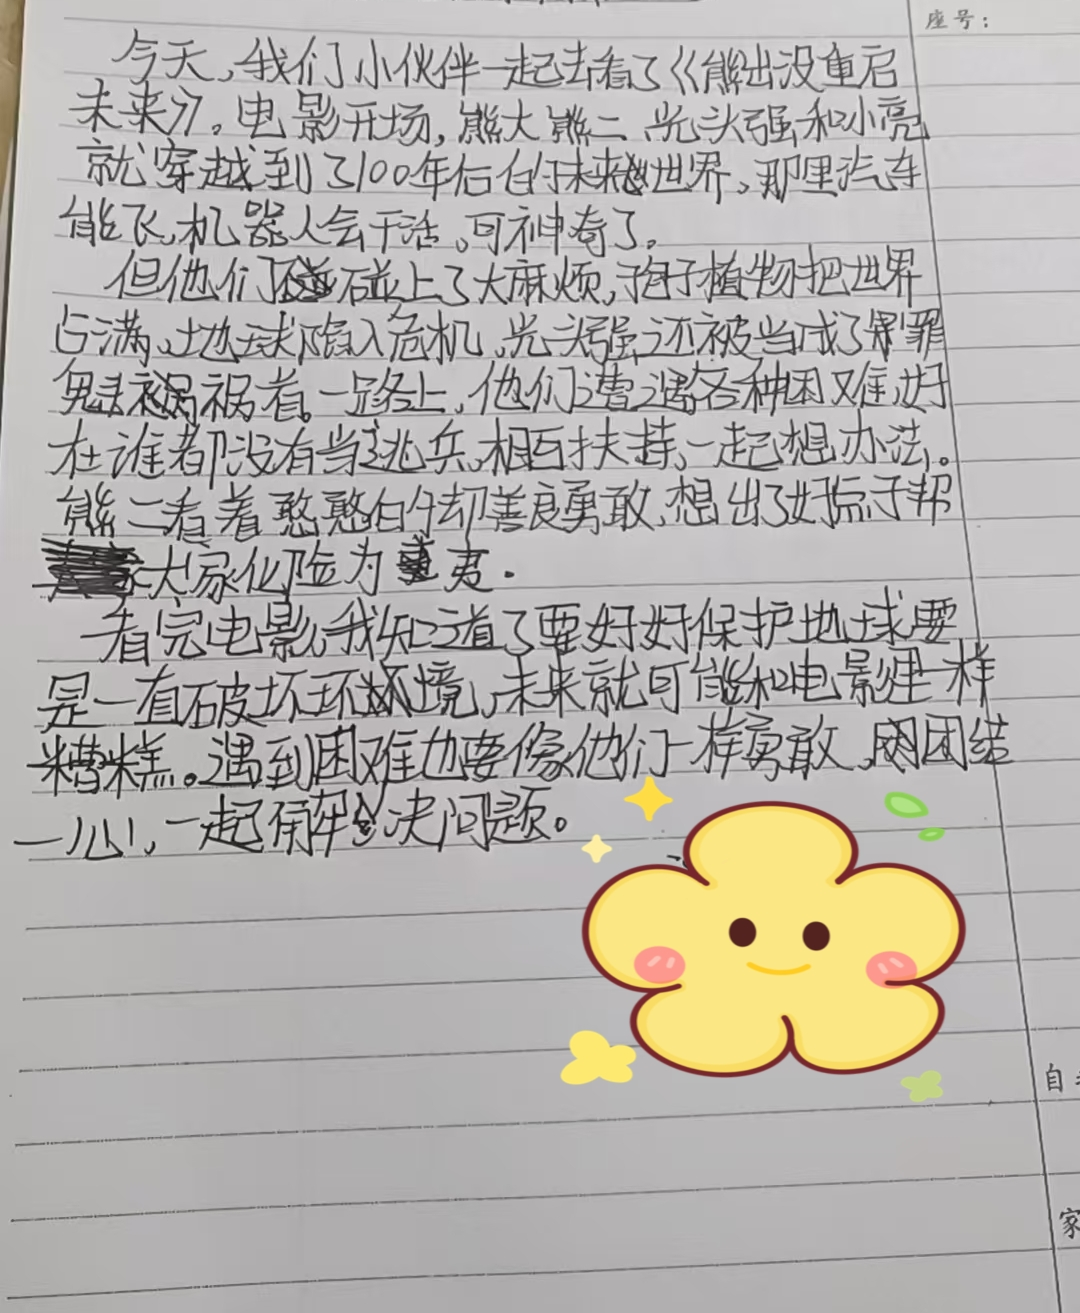 座号：
今天，我们小伙伴一起去看了《熊出没重启
未来》。电影开场，熊大熊二、光头强和小亮
就穿越到了100年后的未来世界，那里汽车
能飞，机器人会干活，可神奇了。
但他们碰上了大麻烦，孢子植物把世界
占满，地球陷入危机，光头强还被当成了罪
魁祸者。一路上，他们遭遇各种困难，好
在谁都没有当逃兵，相互扶持，一起想办法。
熊二看着憨憨的却善良勇敢，想出了好点子帮
大家化险为夷.
看完电影，我知道了要好好保护地球要
是一直破坏环境，未来就可能和电影里一样
糟糕。遇到困难也要像他们一样勇敢，团结
一心，一起解决问题。
自
家